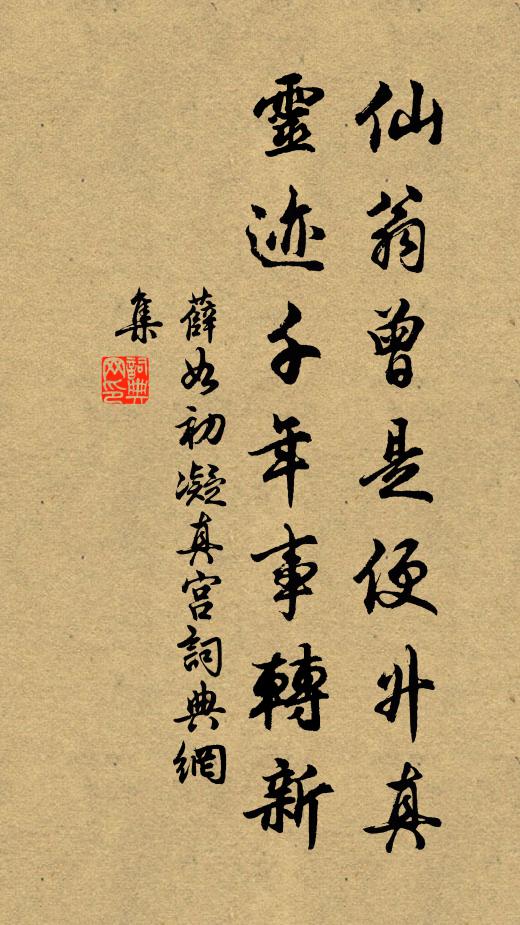 仙翁曾是便升真
靈迹千年事轉新
薛如初凝真宫詞典網
集
詞典
网印